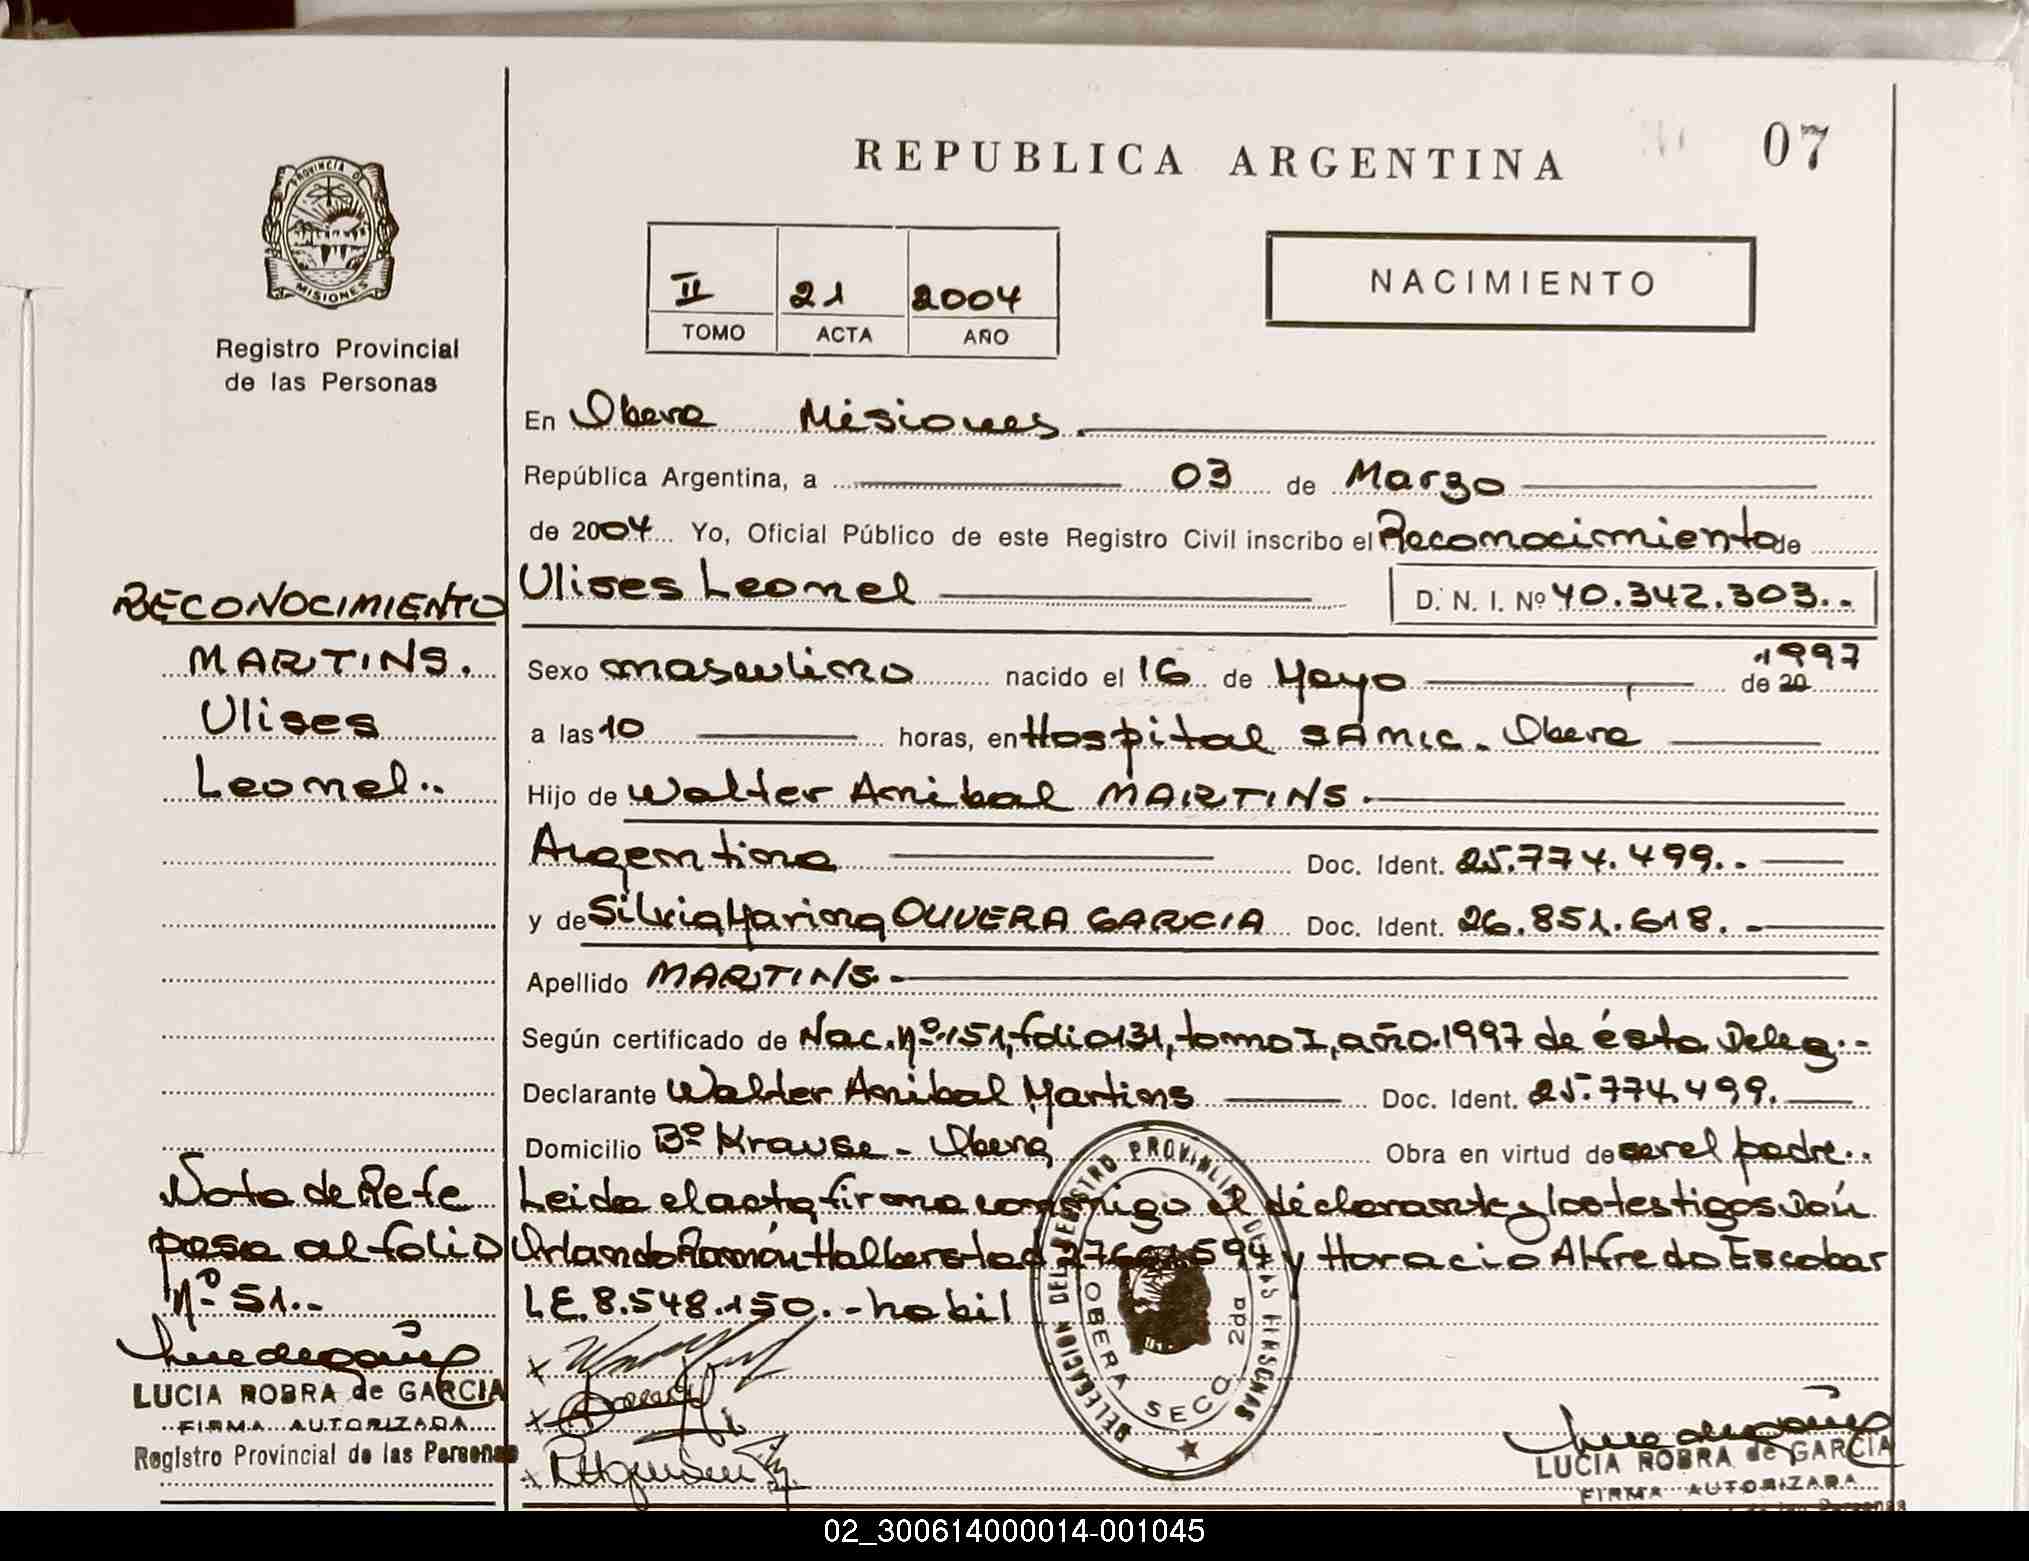 REPUBLICA ARGENTINA
07
PROVINCIA DE
MISIONES
Registro Provincial
de las Personas
II 21 2004
TOMO ACTA AÑO
NACIMIENTO
En Obera Misiones.
República Argentina, a 03 de Marzo
de 2004 Yo, Oficial Público de este Registro Civil inscribo el Reconocimiento de
Ulises Leonel D. N. I. Nº 40.342.303..
Sexo masculino nacido el 16 de Mayo de 20 1997
a las 10 horas, en Hospital SAMIC. Obera
Hijo de Walter Anibal MARTINS.
Argentina Doc. Ident. 25.774.499..
y de Silvia Marina OLIVERA GARCIA Doc. Ident. 26.851.618.
Apellido MARTINS.
Según certificado de Nac. Nº 151, folio 131, tomo I, año 1997 de ésta Deleg.-
Declarante Walter Anibal Martins Doc. Ident. 25.774.499.
Domicilio Bº Krause - Obera Obra en virtud de ser el padre..
Leida el acta firma conmigo el declarante y los testigos Don
Orlando Ramón Halberstad y Horacio Alfredo Escobar
L.E. 8.548.150.- habil
RECONOCIMIENTO
MARTINS.
Ulises
Leonel..
Nota de Refe
pasa al folio
Nº 51..
LUCIA ROBRA de GARCIA
FIRMA AUTORIZADA
Registro Provincial de las Personas
DELEGACION DEL REGISTRO PROVINCIAL DE LAS PERSONAS
OBERA SECC. 2da
LUCIA ROBRA de GARCIA
FIRMA AUTORIZADA
02_300614000014-001045